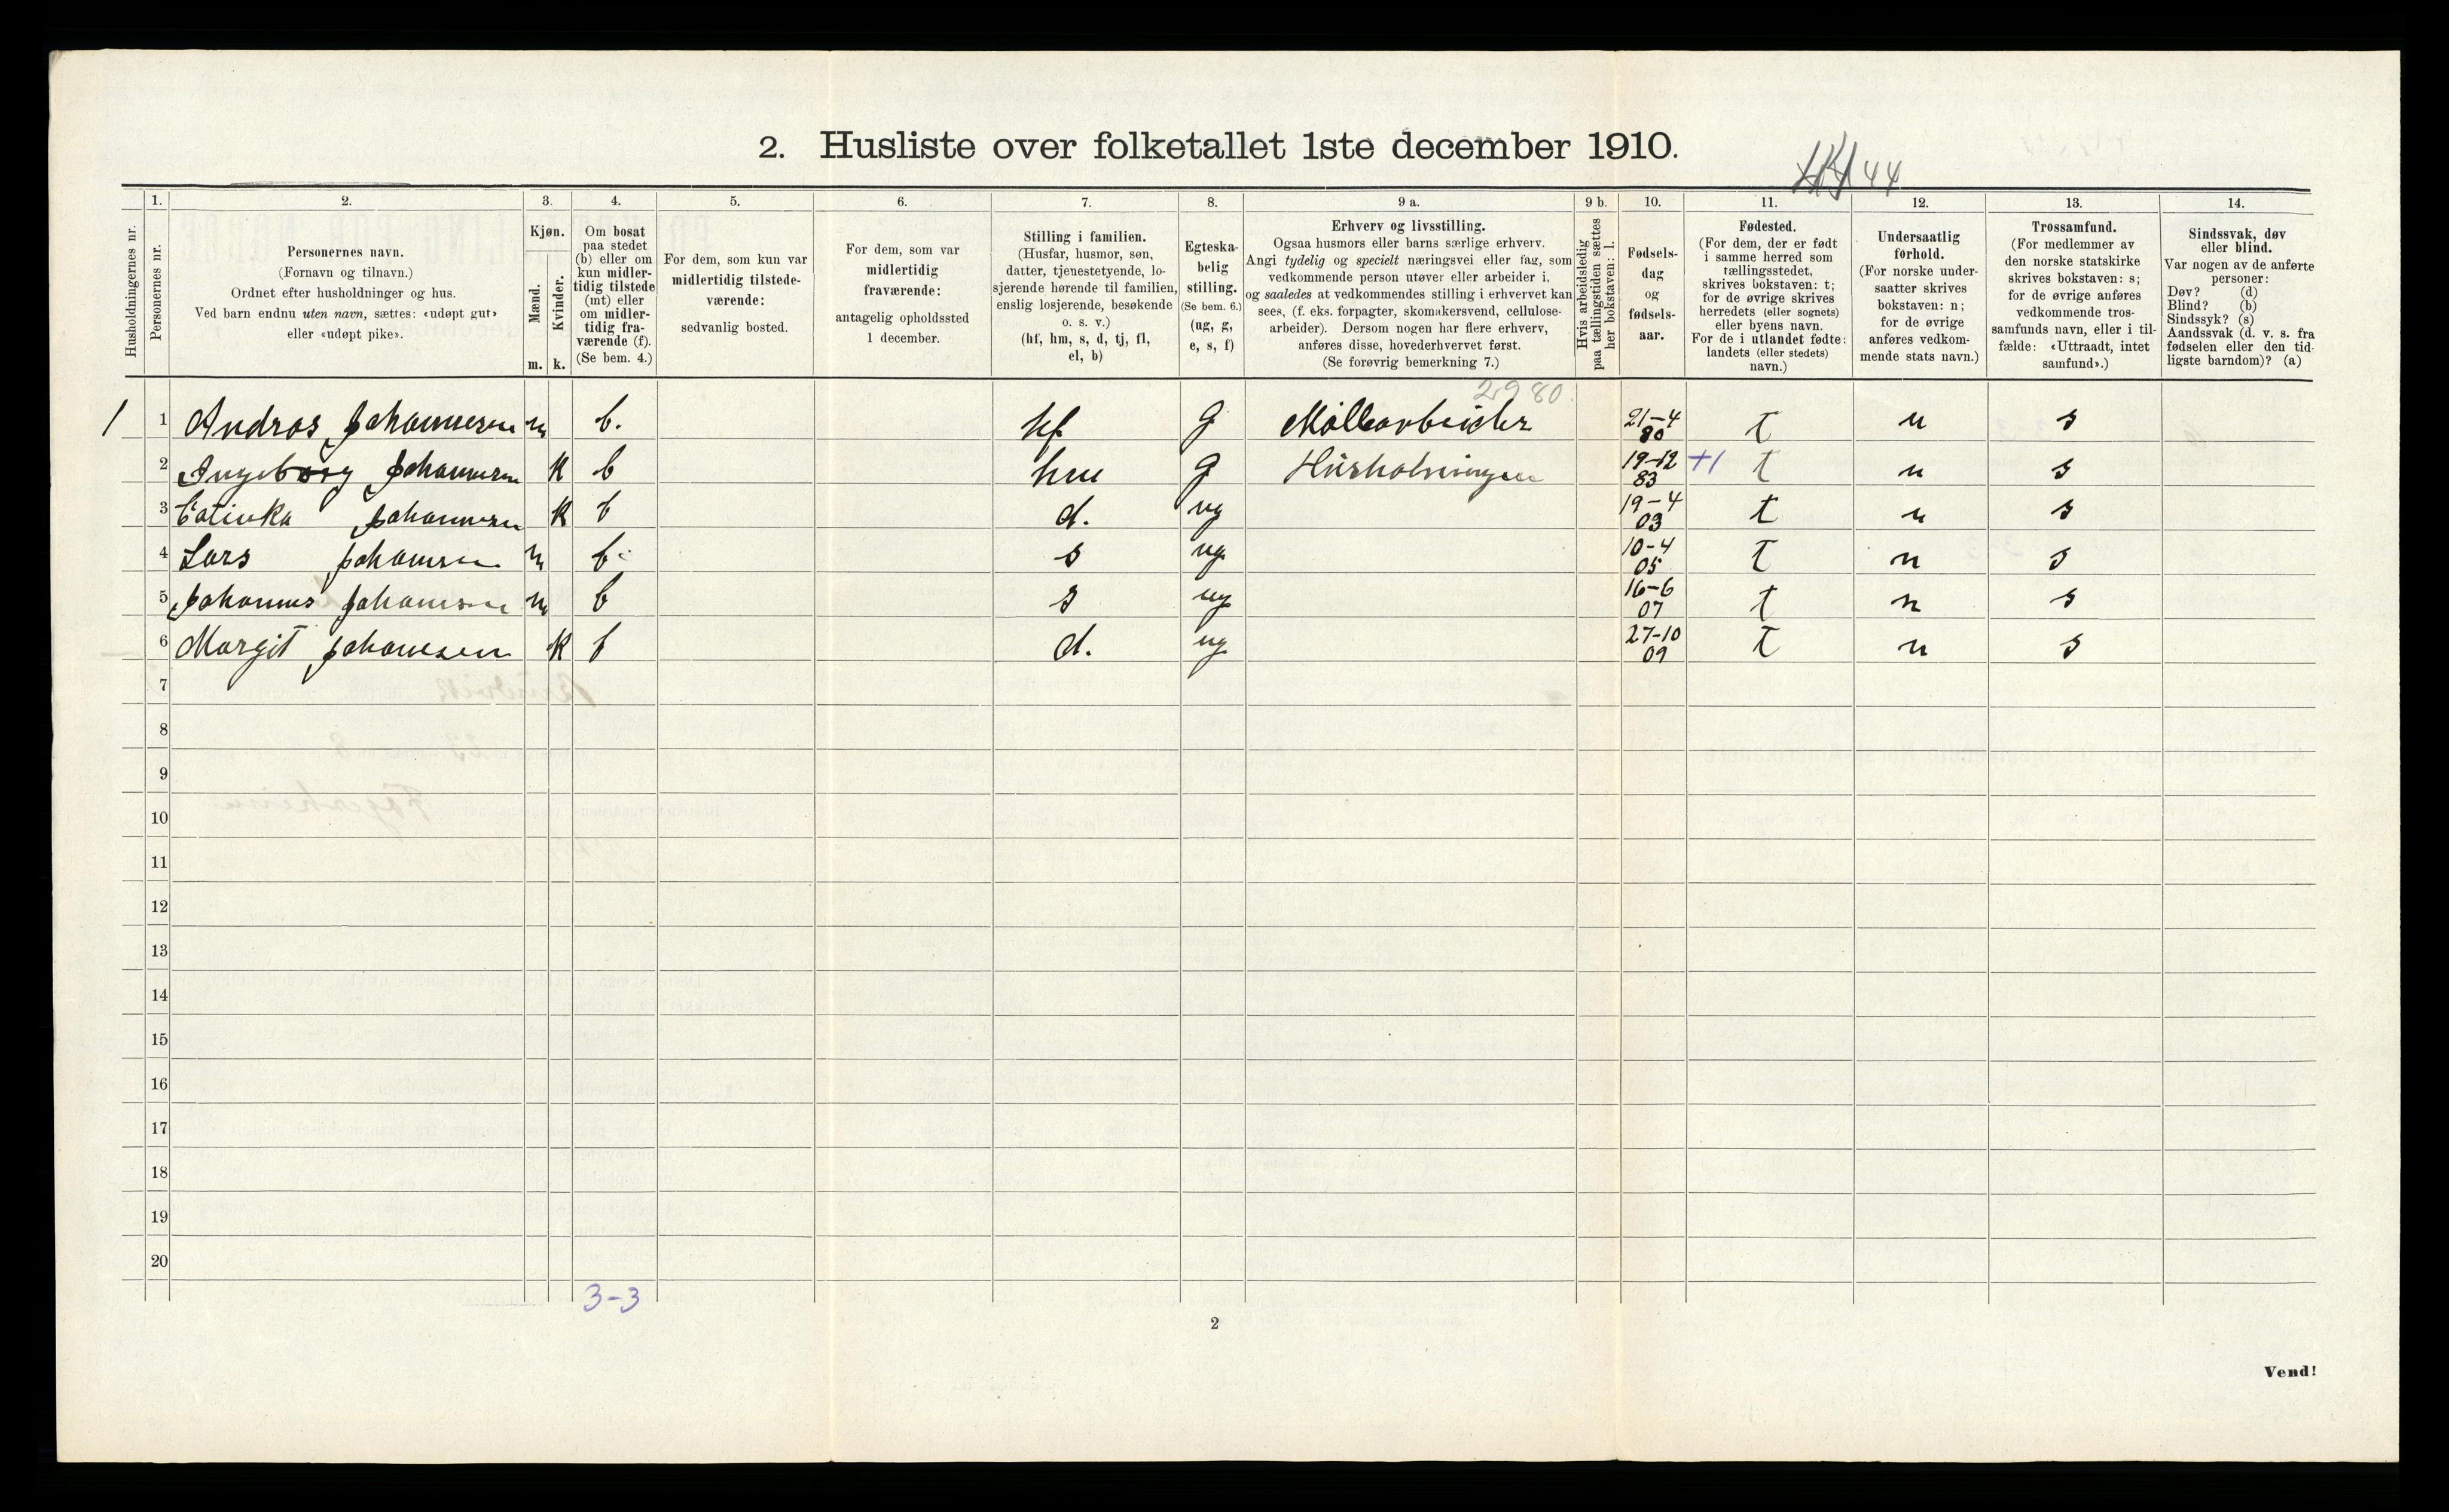 2. Husliste over folketallet 1ste december 1910.
44
Husholdningernes nr.
1. Personernes nr.
2. Personernes navn.
(Fornavn og tilnavn.)
Ordnet efter husholdninger og hus.
Ved barn endnu uten navn, sættes: «udøpt gut»
eller «udøpt pike».
3. Kjøn.
Mænd. m.
Kvinder. k.
4. Om bosat
paa stedet
(b) eller om
kun midler-
tidig tilstede
(mt) eller
om midler-
tidig fra-
værende (f).
(Se bem. 4.)
5. For dem, som kun var
midlertidig tilstede-
værende:
sedvanlig bosted.
6. For dem, som var
midlertidig
fraværende:
antagelig opholdssted
1 december.
7. Stilling i familien.
(Husfar, husmor, søn,
datter, tjenestetyende, lo-
sjerende hørende til familien,
enslig losjerende, besøkende
o. s. v.)
(hf, hm, s, d, tj, fl,
el, b)
8. Egteska-
belig
stilling.
(Se bem. 6.)
(ug, g,
e, s, f)
9 a. Erhverv og livsstilling.
Ogsaa husmors eller barns særlige erhverv.
Angi tydelig og specielt næringsvei eller fag, som
vedkommende person utøver eller arbeider i,
og saaledes at vedkommendes stilling i erhvervet kan
sees, (f. eks. forpagter, skomakersvend, cellulose-
arbeider). Dersom nogen har flere erhverv,
anføres disse, hovederhvervet først.
(Se forøvrig bemerkning 7.)
9 b. Hvis arbeidsledig
paa tællingstiden sættes
her bokstaven: l.
10. Fødsels-
dag
og
fødsels-
aar.
11. Fødested.
(For dem, der er født
i samme herred som
tællingsstedet,
skrives bokstaven: t;
for de øvrige skrives
herredets (eller sognets)
eller byens navn.
For de i utlandet fødte:
landets (eller stedets)
navn.)
12. Undersaatlig
forhold.
(For norske under-
saatter skrives
bokstaven: n;
for de øvrige
anføres vedkom-
mende stats navn.)
13. Trossamfund.
(For medlemmer av
den norske statskirke
skrives bokstaven: s;
for de øvrige anføres
vedkommende tros-
samfunds navn, eller i til-
fælde: «Uttraadt, intet
samfund».)
14. Sindssvak, døv
eller blind.
Var nogen av de anførte
personer:
Døv? (d)
Blind? (b)
Sindssyk? (s)
Aandssvak (d. v. s. fra
fødselen eller den tid-
ligste barndom)? (a)
2980.
1 1 Andras Johannesen m b. hf g Møllearbeider 21-4 80 t n s
2 Ingeborg Johannesen K b hm g Husholningen 19-12 83 +1 t n s
3 Catinka Johannesen K b d. ug 19-4 03 t n s
4 Lars Johansen m b s ug 10-4 05 t n s
5 Johannes Johansen m b s ug 16-6 07 t n s
6 Margit Johansen K b d. ug 27-10 09 t n s
7
8
9
10
11
12
13
14
15
16
17
18
19
20
3-3
2
Vend!